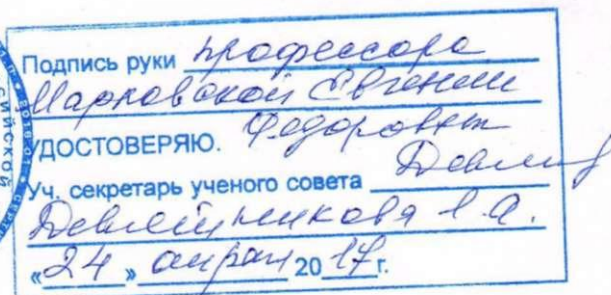 Подпись руки профессора
Марковской Евгении
Федоровны
УДОСТОВЕРЯЮ.
Уч. секретарь ученого совета
«24» апреля 2017 г.